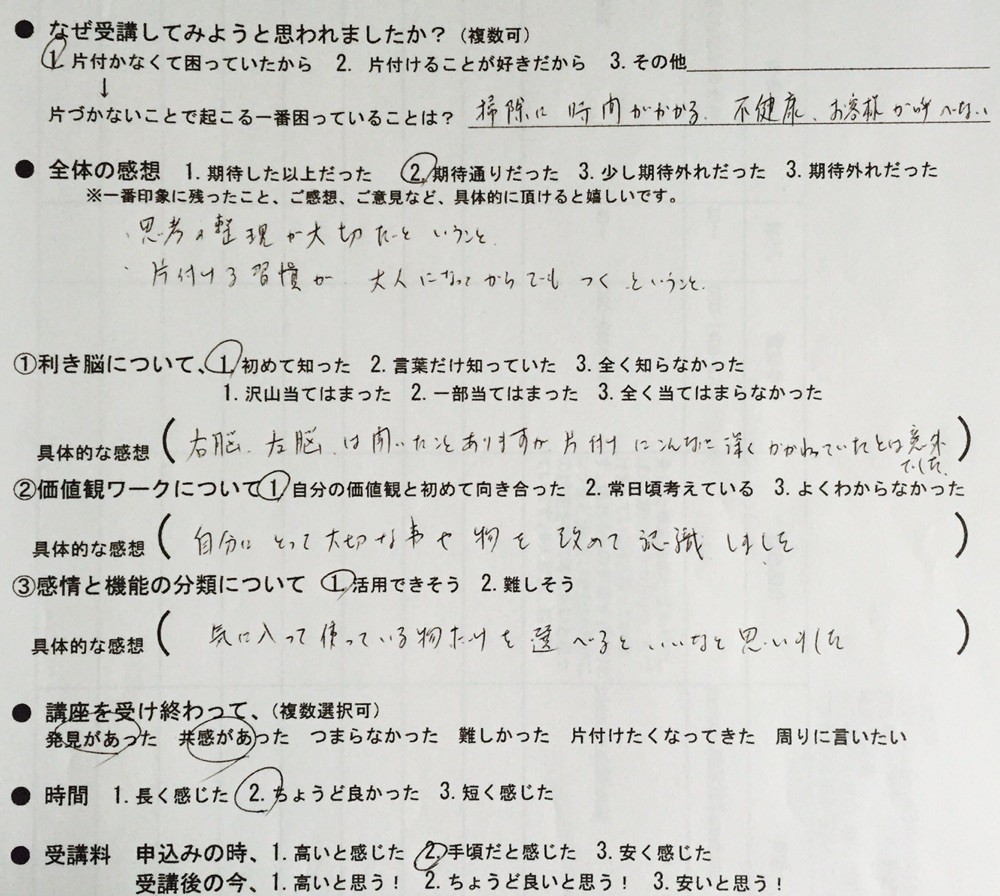 ● なぜ受講してみようと思われましたか？（複数可）
1. 片付かなくて困っていたから 2. 片付けることが好きだから 3. その他
↓
片づかないことで起こる一番困っていることは？ 掃除に時間がかかる、不健康、お客様が呼べない
● 全体の感想 1. 期待した以上だった 2. 期待通りだった 3. 少し期待外れだった 3. 期待外れだった
※一番印象に残ったこと、ご感想、ご意見など、具体的に頂けると嬉しいです。
・思考の整理が大切だということ
・片付ける習慣が 大人になってからでもつくということ。
①利き脳について、1. 初めて知った 2. 言葉だけ知っていた 3. 全く知らなかった
1. 沢山当てはまった 2. 一部当てはまった 3. 全く当てはまらなかった
具体的な感想（右脳、左脳、は聞いたことありますが、片付けにこんなに深くかかわっていたとは意外でした。）
②価値観ワークについて 1. 自分の価値観と初めて向き合った 2. 常日頃考えている 3. よくわからなかった
具体的な感想（自分にとって大切な事や物を改めて認識しました）
③感情と機能の分類について 1. 活用できそう 2. 難しそう
具体的な感想（気に入って使っている物だけを選べるといいなと思いました）
● 講座を受け終わって、（複数選択可）
発見があった 共感があった つまらなかった 難しかった 片付けたくなってきた 周りに言いたい
● 時間 1. 長く感じた 2. ちょうど良かった 3. 短く感じた
● 受講料 申込みの時、1. 高いと感じた 2. 手頃だと感じた 3. 安く感じた
受講後の今、1. 高いと思う！ 2. ちょうど良いと思う！ 3. 安いと思う！